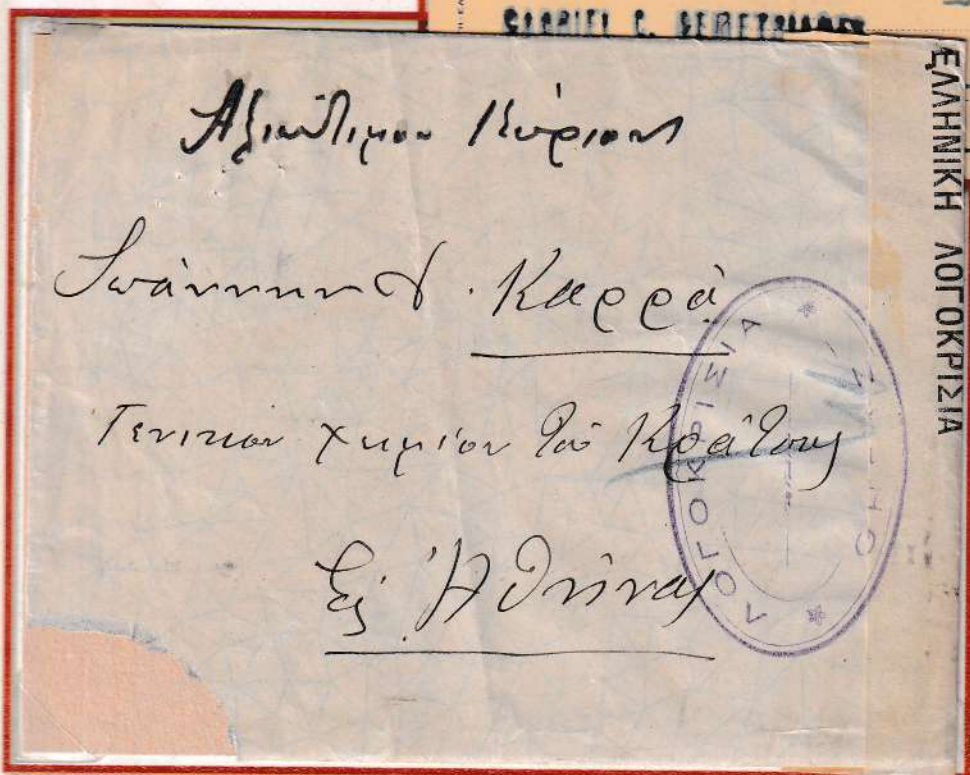 GABRIEL C.
Ἀξιότιμον Κύριον
Ἰωάννην Καρρᾶ
Γενικὸν Χημίον τοῦ Κράτους
Εἰς Ἀθήνας
ΕΛΛΗΝΙΚΗ ΛΟΓΟΚΡΙΣΙΑ
ΛΟΓΟΚΡΙΣΙΑ